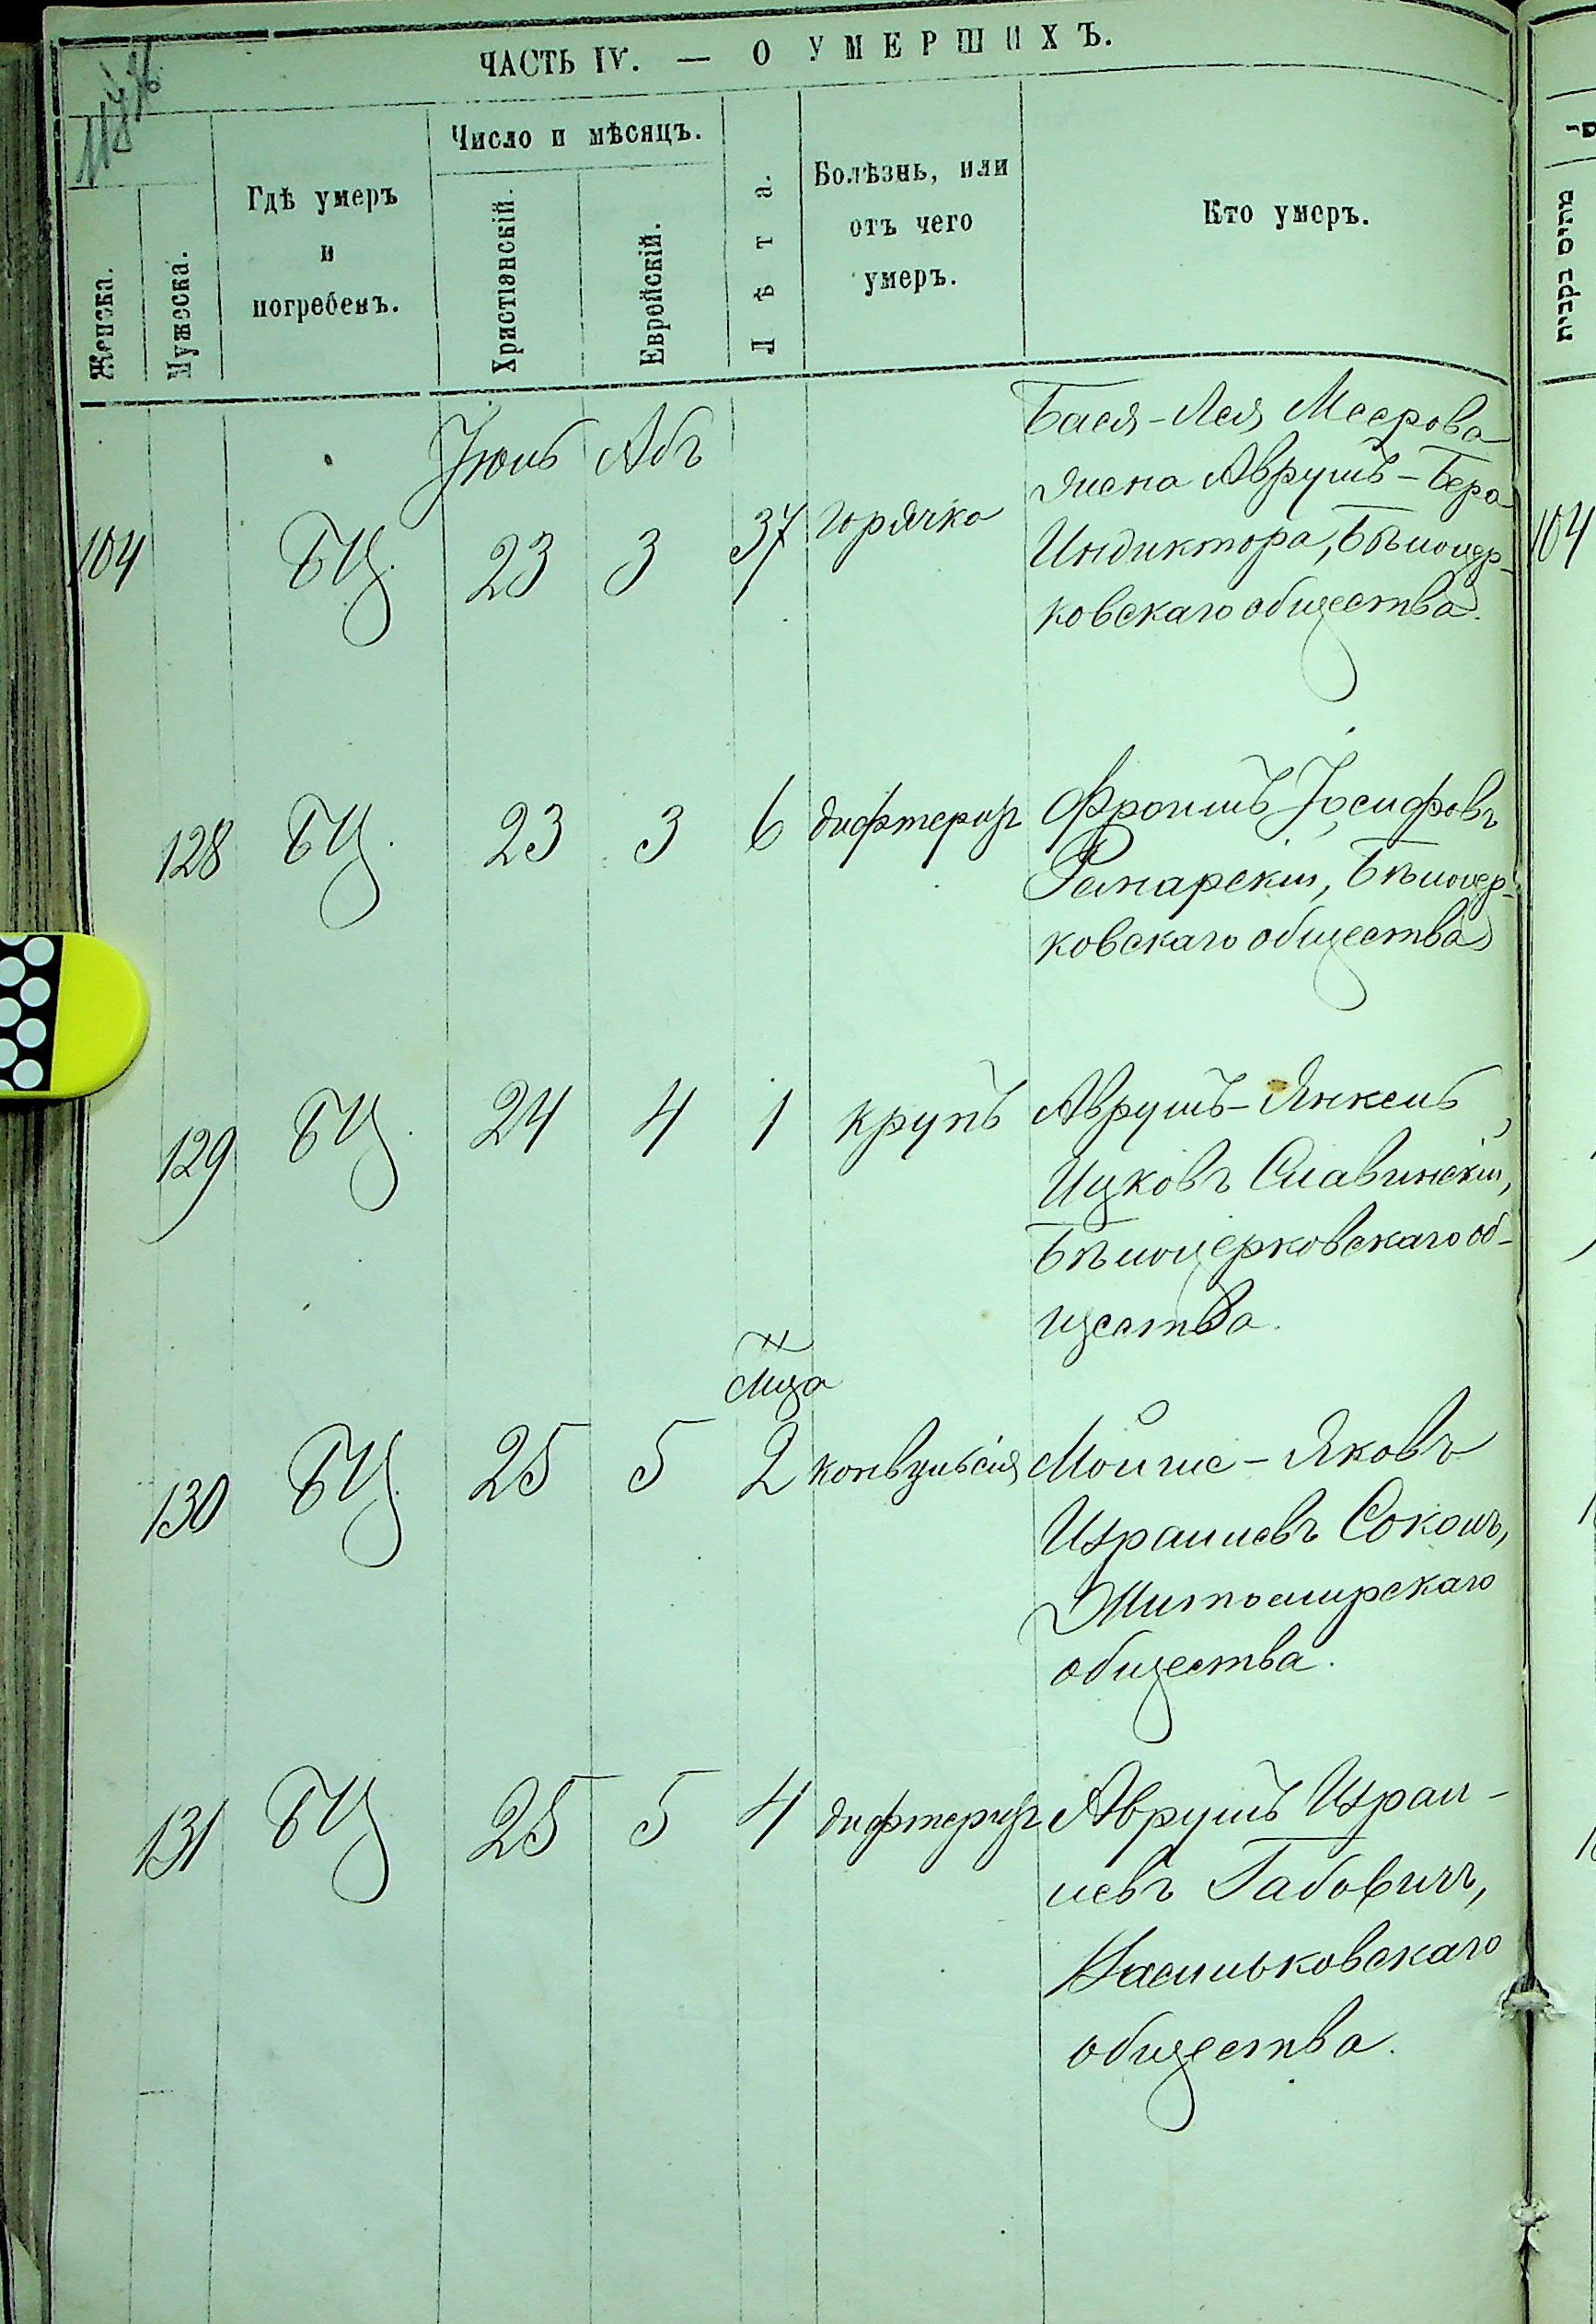 ЧАСТЬ IV. — О УМЕРШИХЪ.
Женска.
Мужеска.
Гдѣ умеръ
и
погребенъ.
Число и мѣсяцъ.
Христіянскій.
Еврейскій.
Лѣта.
Болѣзнь, или
отъ чего
умеръ.
Кто умеръ.
Іюль Абъ
104 БЦ. 23 3 37 горячка
Бася-Лея Меерова
жена Аврумъ-Бера
Индиктора, Бѣлоцер-
ковскаго общества.
104
128 БЦ. 23 3 6 дифтеритъ
Фроимъ Іосифовъ
Бѣлоцер-
ковскаго общества
129 БЦ. 24 4 1 крупъ
Аврумъ-Янкель
Ицковъ Славинскій,
Бѣлоцерковскаго об-
щества.
М̃ца
130 БЦ. 25 5 2 конвульсія
Мойше-Яковъ
Израилевъ Соколъ,
Житомирскаго
общества.
131 БЦ 25 5 4 дифтеритъ
Аврумъ Изра и-
левъ Габовичъ,
Васильковскаго
общества.